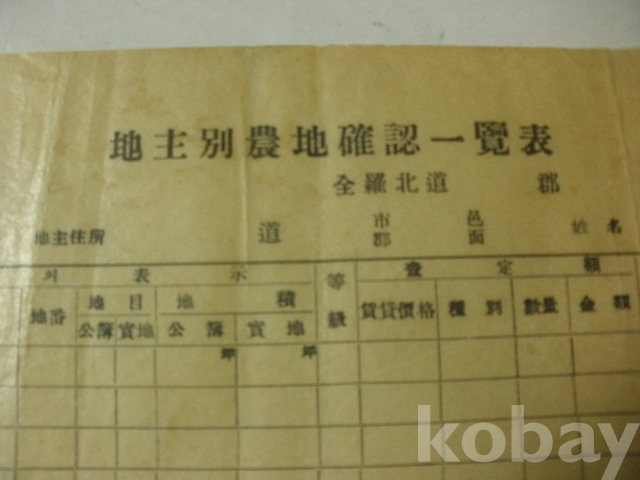 地主別農地確認一覽表
全羅北道 郡
地主住所 道 市郡 邑面 姓名
의 表示 等級 査定額
地番 地目 地積 賃貸價格 種別 數量 金額
公簿 實地 公簿 實地
坪 坪
kobay